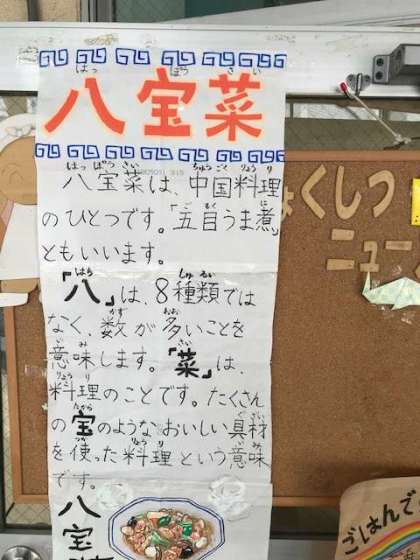 八宝菜
八宝菜は、中国料理
のひとつです。「五目うま煮」
ともいいます。
「八」は、8種類では
なく、数が多いことを
意味します。「菜」は、
料理のことです。たくさん
の宝のようなおいしい具材
を使った料理という意味
です。
八宝菜
ょくしつ
ニュー
ごはんで